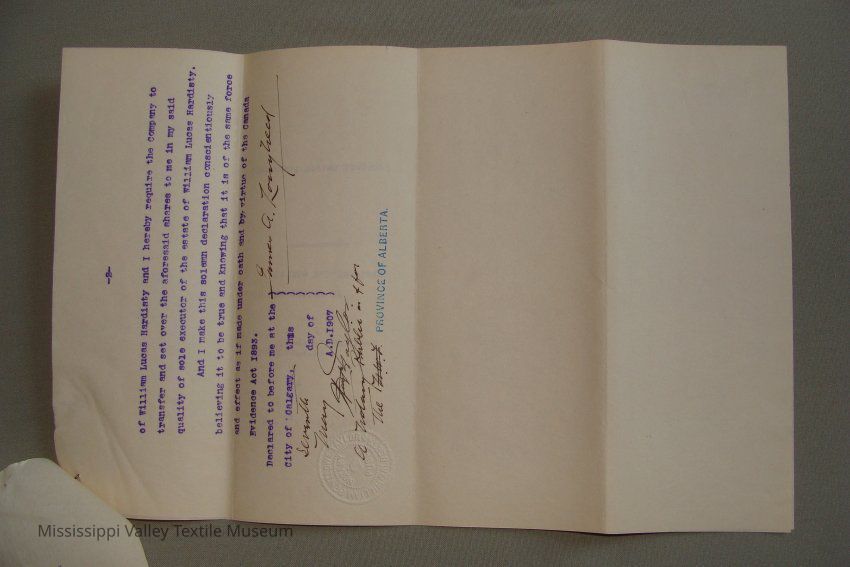 -2-
of William Lucas Hardisty and I hereby require the Company to
transfer and set over the aforesaid shares to me in my said
quality of sole executor of the estate of William Lucas Hardisty.
And I make this solemn declaration conscientiously
believing it to be true and knowing that it is of the same force
and effect as if made under oath and by virtue of the Canada
Evidence Act 1893.
Declared to before me at the James A. Lougheed
City of Calgary, this
Seventh day of
May A.D.1907
A Notary Public in & for
The PROVINCE OF ALBERTA.
Mississippi Valley Textile Museum